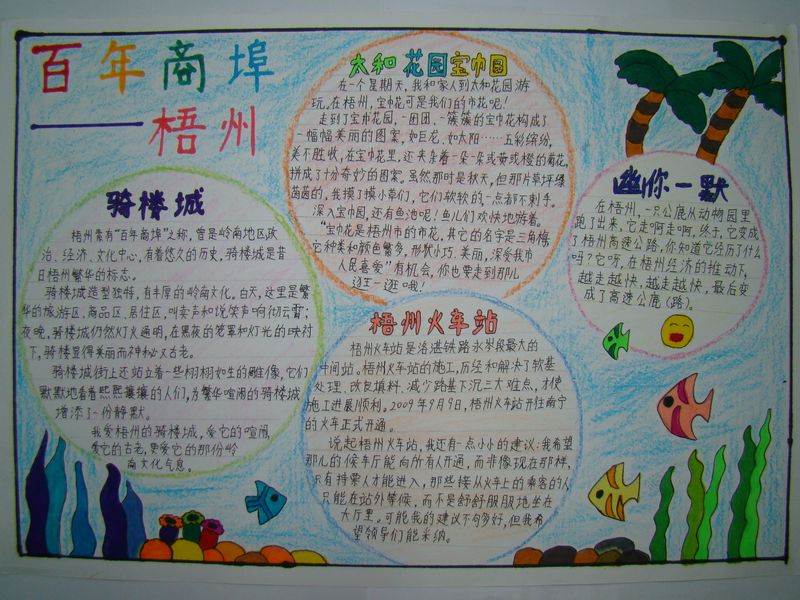 百年商埠
——梧州
骑楼城
梧州素有“百年商埠”之称，曾是岭南地区政
治、经济、文化中心，有着悠久的历史，骑楼城是昔
日梧州繁华的标志。
骑楼城造型独特，有丰厚的岭南文化。白天，这里是繁
华的旅游区、商品区、居住区，叫卖声和说笑声响彻云霄；
夜晚，骑楼城仍然灯火通明，在黑夜的笼罩和灯光的映衬
下，骑楼显得美丽而神秘又古老。
骑楼城街上还站立着一些栩栩如生的雕像，它们
默默地看着熙熙攘攘的人们，为繁华喧闹的骑楼城
增添了一份静默。
我爱梧州的骑楼城，爱它的喧闹，
爱它的古老，更爱它的那份岭
南文化气息。
太和花园宝巾园
在一个星期天，我和家人到太和花园游
玩，在梧州，宝巾花可是我们的市花呢！
走到了宝巾花园，一团团、一簇簇的宝巾花构成了
一幅幅美丽的图案，如巨龙、如太阳……五彩缤纷，
美不胜收，在宝巾花里，还夹杂着一朵一朵或黄或橙的菊花，
拼成了十分奇妙的图案，虽然那时是秋天，但那片草坪绿
茵茵的，我摸了摸小草们，它们软软的一点都不刺手。
深入宝巾园，还有鱼池呢！鱼儿们欢快地游着。
“宝巾花是梧州市的市花，其它的名字是三角梅，
它种类和颜色繁多，形状小巧、美丽，深受我市
人民喜爱”有机会，你也要走到那儿
逛一逛哦！
梧州火车站
梧州火车站是洛湛铁路永岑段最大的
中间站。梧州火车站的施工，历经和解决了软基
处理、改良填料、减少路基下沉三大难点，才使
施工进展顺利。2009年9月9日，梧州火车站开往南宁
的火车正式开通。
说起梧州火车站，我还有一点小小的建议：我希望
那儿的候车厅能向所有人开通，而非像现在那样，
只有持票人才能进入，那些接从火车上的乘客的人
只能在站外等候，而不是舒舒服服地坐在
大厅里。可能我的建议不够多好，但我希
望领导们能采纳。
幽你一默
在梧州，一只公鹿从动物园里
跑了出来，它走啊走啊，终于，它变成
了梧州高速公路，你知道它经历了什么
吗？它呀，在梧州经济的推动下，
越走越快，越走越快，最后变
成了高速公鹿（路）。